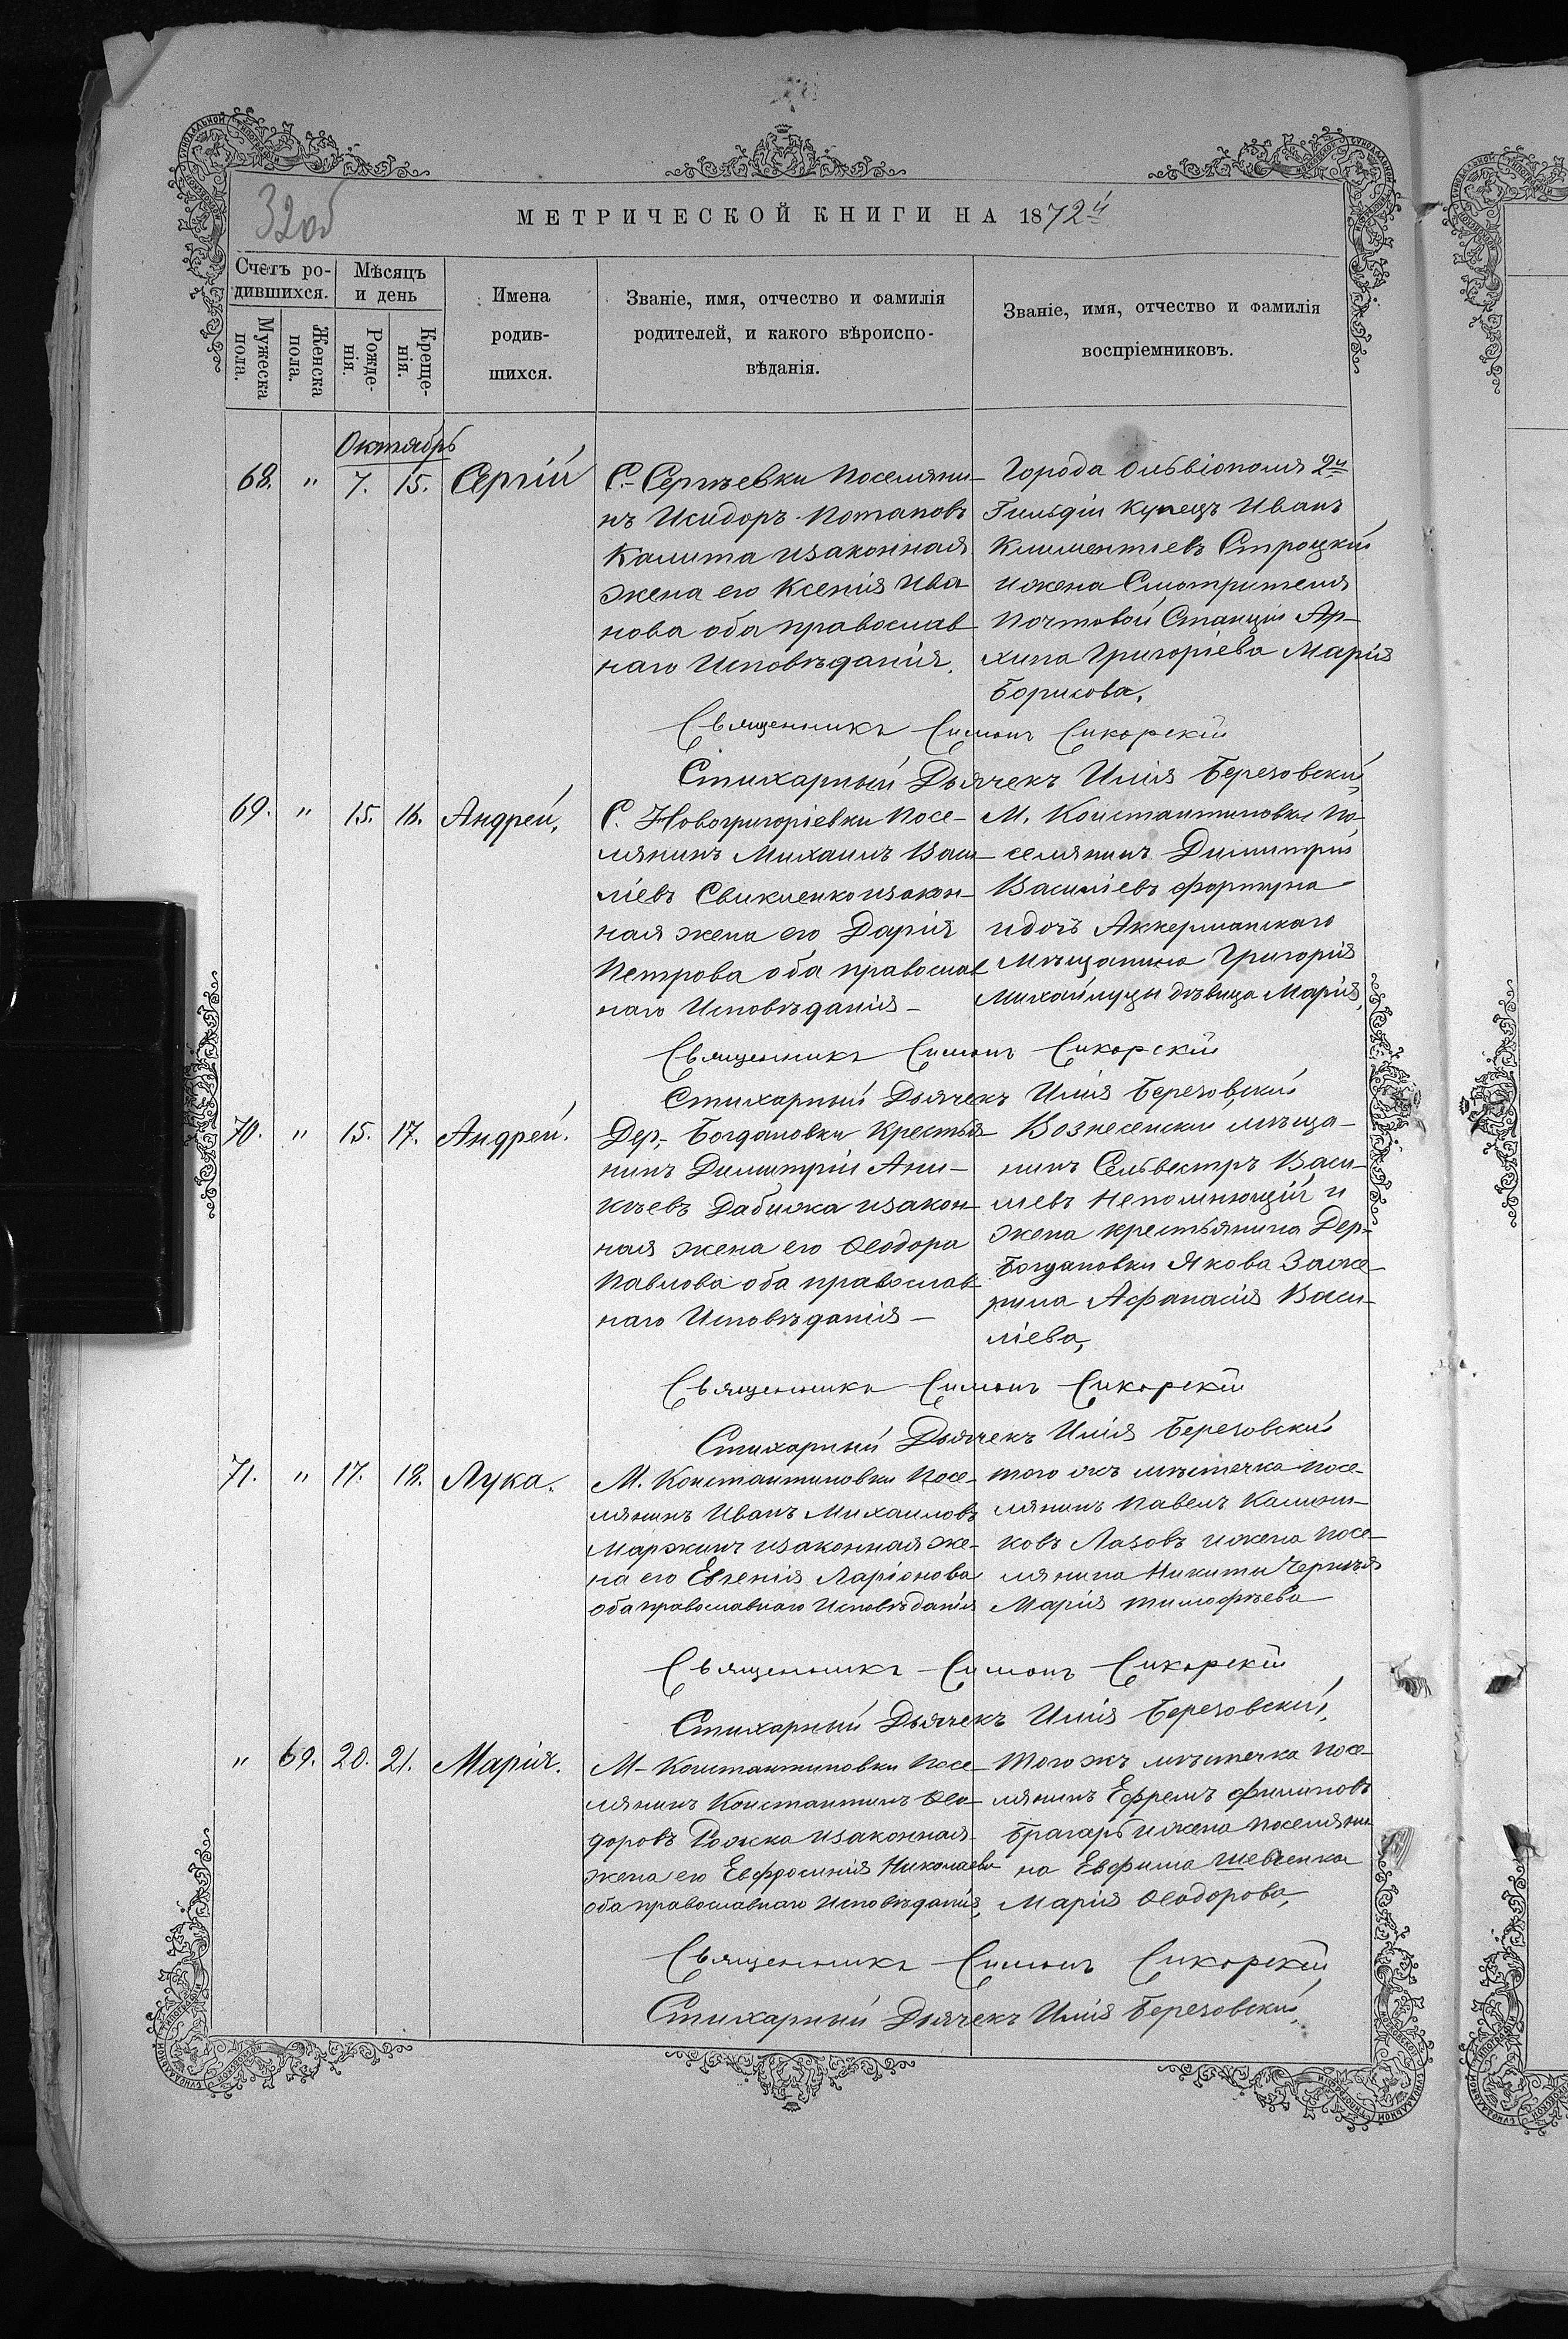 32об
МЕТРИЧЕСКОЙ КНИГИ НА 1872й
Счетъ ро-
дившихся.
Мѣсяцъ
и день
Имена
родив-
шихся.
Званіе, имя, отчество и фамилія
родителей, и какого вѣроиспо-
вѣданія.
Званіе, имя, отчество и фамилія
воспріемниковъ.
Мужеска
пола.
Женска
пола.
Рожде-
нія.
Креще-
нія.
Октябрь
68. " 7. 15. Сергій
С. Сергѣевки Поселяни-
нъ Исидоръ Потаповъ
Калита изаконная
жена его Ксенія Ива
нова оба православ
наго Исповѣданія.
Города Ольвіополя 2й
Гильдіи Купецъ Иванъ
Климентіевъ Строцкій
ижена Смотрителя
Почтовой Станціи Ар-
хипа Григоріева Марія
Борисова,
Священникъ Симонъ Сикорскій
Стихарный Дьячекъ Илія Березовскій,
69. " 15. 16. Андрей,
С. Новогригоріевки Посе-
лянинъ Михаилъ Васи-
ліевъ Свикленко изакон-
ная жена его Дарія
Петрова оба православ
наго Исповѣданія -
М. Константиновки По-
селянинъ Димитрій
Василіевъ Фортуна
идочь Аккерманскаго
Мѣщанина Григорія
Михайлуцы дѣвица Марія,
Священникъ Симонъ Сикорскій
Стихарный Дьячекъ Илія Березовскій
70. " 15. 17. Андрей.
Дер. Богдановки Крестья
нинъ Димитрій Ани-
кѣевъ Дабижа изакон-
ная жена его Ѳеодора
Павлова оба православ
наго Исповѣданія -
Вознесенски мѣща-
нинъ Сельвестръ Васи-
ліевъ Непомнющій и
жена крестьянина Дер-
Богдановки Якова
Афанасія Васи-
ліева,
Священникъ Симонъ Сикорскій
Стихарный Дьячекъ Илія Березовскій
71. " 17. 18. Лука.
М. Константиновки Посе-
лянинъ Иванъ Михаиловъ
Маржинъ изаконная же-
на его Евгенія Ларіонова
оба православнаго Исповѣданія
того жъ мѣстечка посе-
лянинъ Павелъ Калини-
ковъ Лазовъ ижена посе-
лянина Никиты Чернѣя
Марія тимофѣева
Священникъ Симонъ Сикорскій
Стихарный Дьячекъ Илія Березовскій,
" 69. 20. 21. Марія.
М- Константиновки Посе-
лянинъ Константинъ Ѳео-
доровъ Рожка изаконная
жена его Евфросинія Николаева
оба православнаго Исповѣданія,
Того жъ мѣстечка посе-
лянинъ Ефремъ Филиповъ
Брагарь ижена поселяни
на Евфима Шевченка
Марія Ѳеодорова,
Священникъ Симонъ Сикорскій
Стихарный Дьячекъ Илія Березовскій,